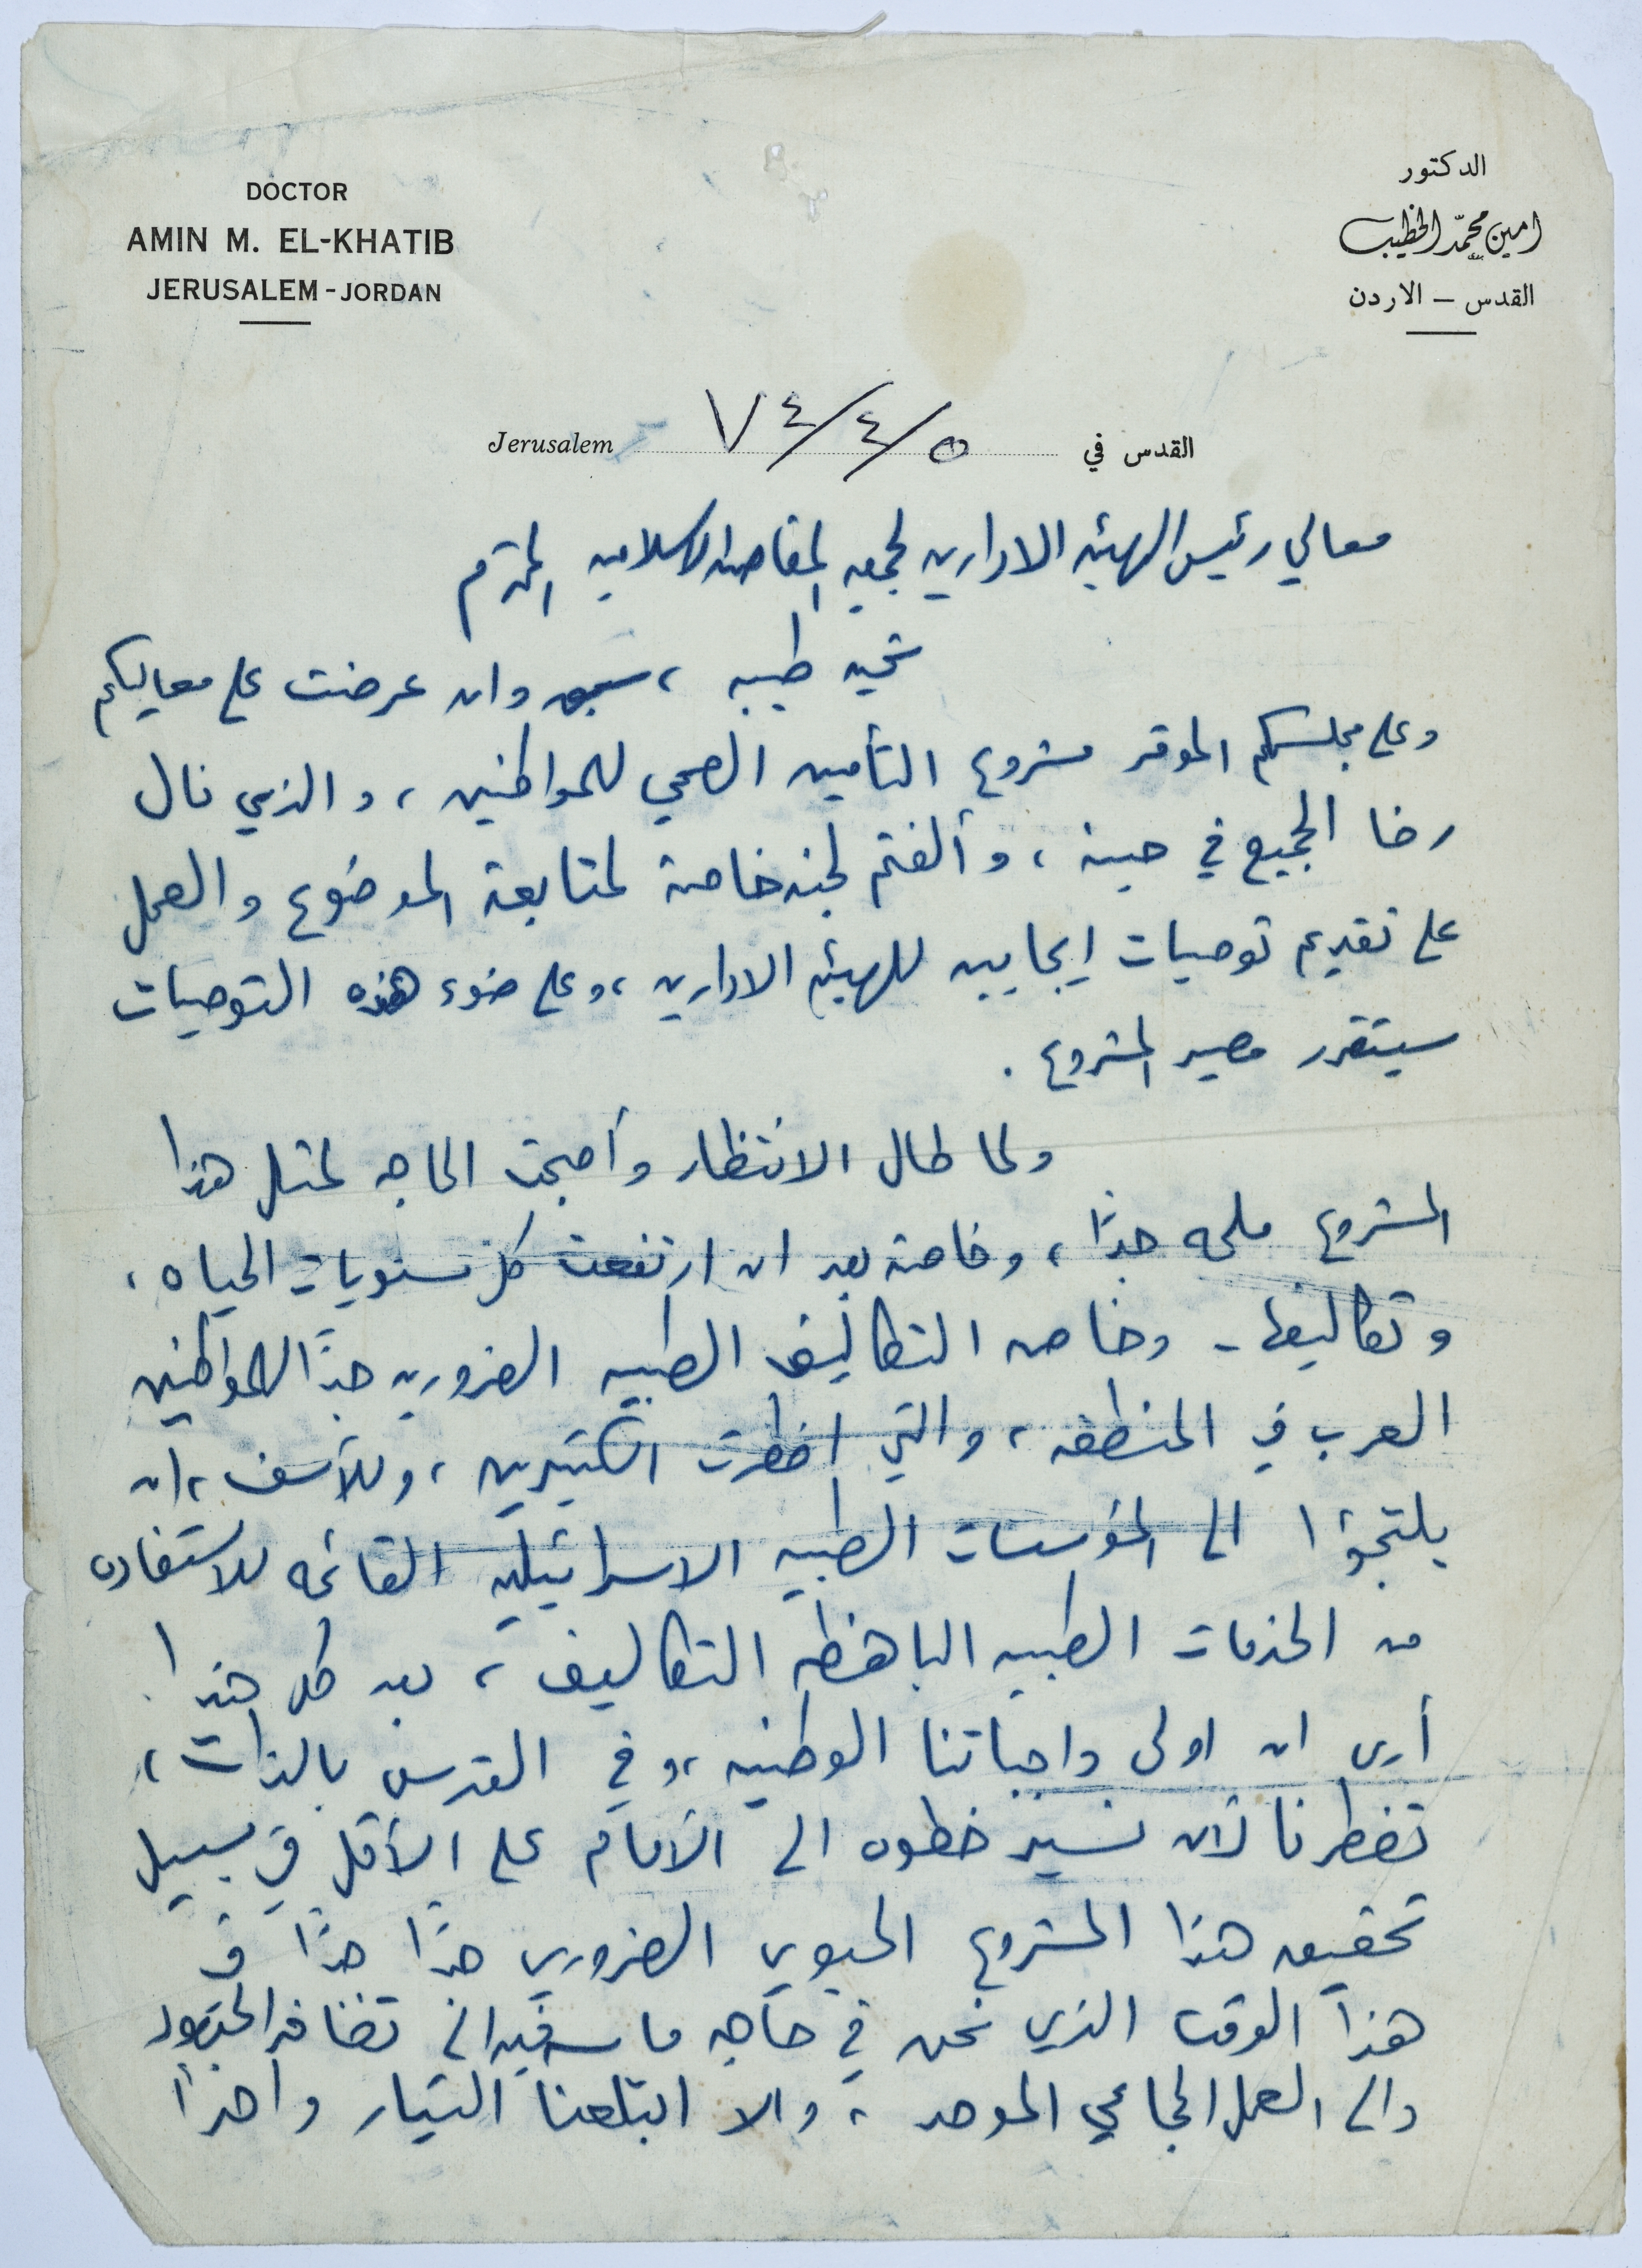 DOCTOR
AMIN M. EL-KHATIB
JERUSALEM - JORDAN
الدكتور
امين محمّد الخطيب
القدس — الاردن
Jerusalem ٧٤/٤/٥ القدس في
معالي رئيس الهيئه الاداريه لجمعيه المقاصد الاسلاميه المحترم
تحيه طيبه ، سبق وان عرضت على معاليكم
وعلى مجلسكم الموقر مشروع التأمين الصحي للمواطنين ، والذي نال
رضا الجميع في حينه ، وألفتم لجنه خاصة لمتابعة الموضوع والعمل
على تقديم توصيات ايجابيه للهيئه الاداريه ، وعلى ضوء هذه التوصيات
سيتقرر مصير المشروع .
ولما طال الانتظار وأصبحت الحاجه لمثل هذا
المشروع ملحه جداً ، وخاصة بعد ان ارتفعت كل مستويات الحياه ،
وتكاليفها - وخاصه التكاليف الطبيه الضروريه جداً للمواطنين
العرب في المنطقه ، والتي اضطرت الكثيرين ، وللأسف ، ان
يلتجؤا الى المؤسسات الطبيه الاسرائيليه القائمه للاستفاده
من الخدمات الطبيه الباهظه التكاليف ، بعد كل هذا
أرى ان اولى واجباتنا الوطنيه ، وفي القدس بالذات ،
تضطرنا لأن نسير خطوه الى الأمام على الأقل في سبيل
تحقيق هذا المشروع الحيوي الضروري جداً جداً في
هذا الوقت الذي نحن في حاجه ماسه فيه الى تضافر الجهود
والى العمل الجماعي الموحد ، والا ابتلعنا التيار واحداً